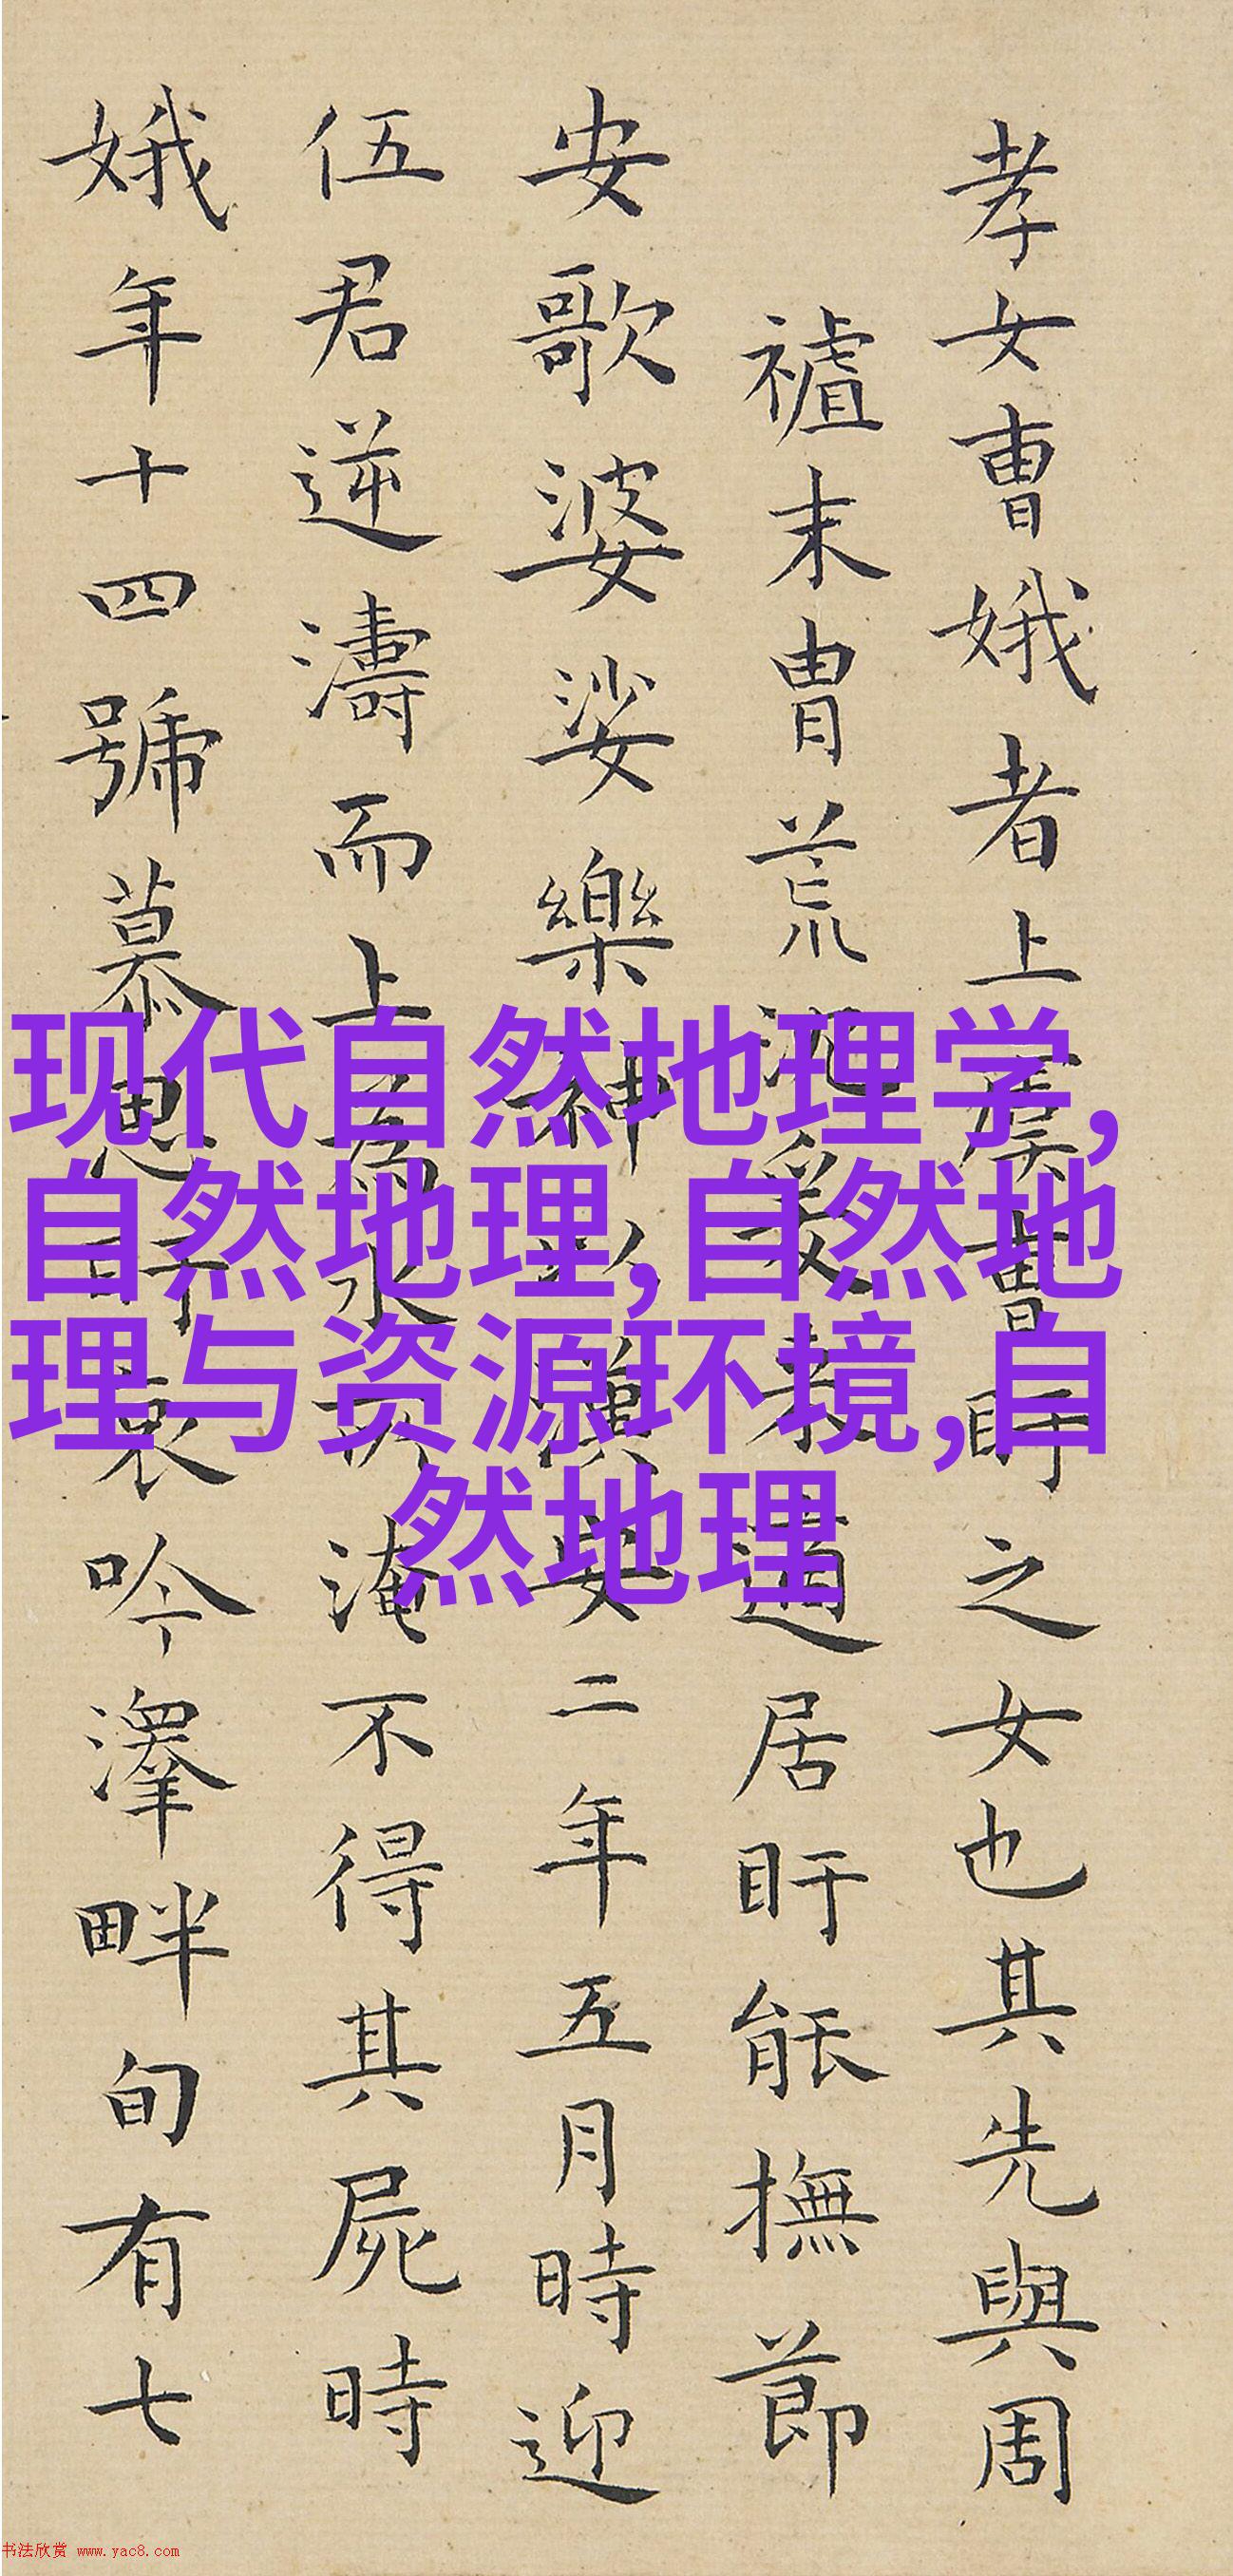 孝女曺娥者上虞曺盱之女也其先與周
末胄荒爰来適居盱能撫節
安歌婆娑樂神以漢安二年五月時迎
伍君逆濤而上為水所淹不得其屍時
娥年十四號慕思盱哀吟澤畔旬有七
现代自然地理学,
自然地理,自然地
理与资源环境,自
然地理
书法欣赏 www.yac8.com